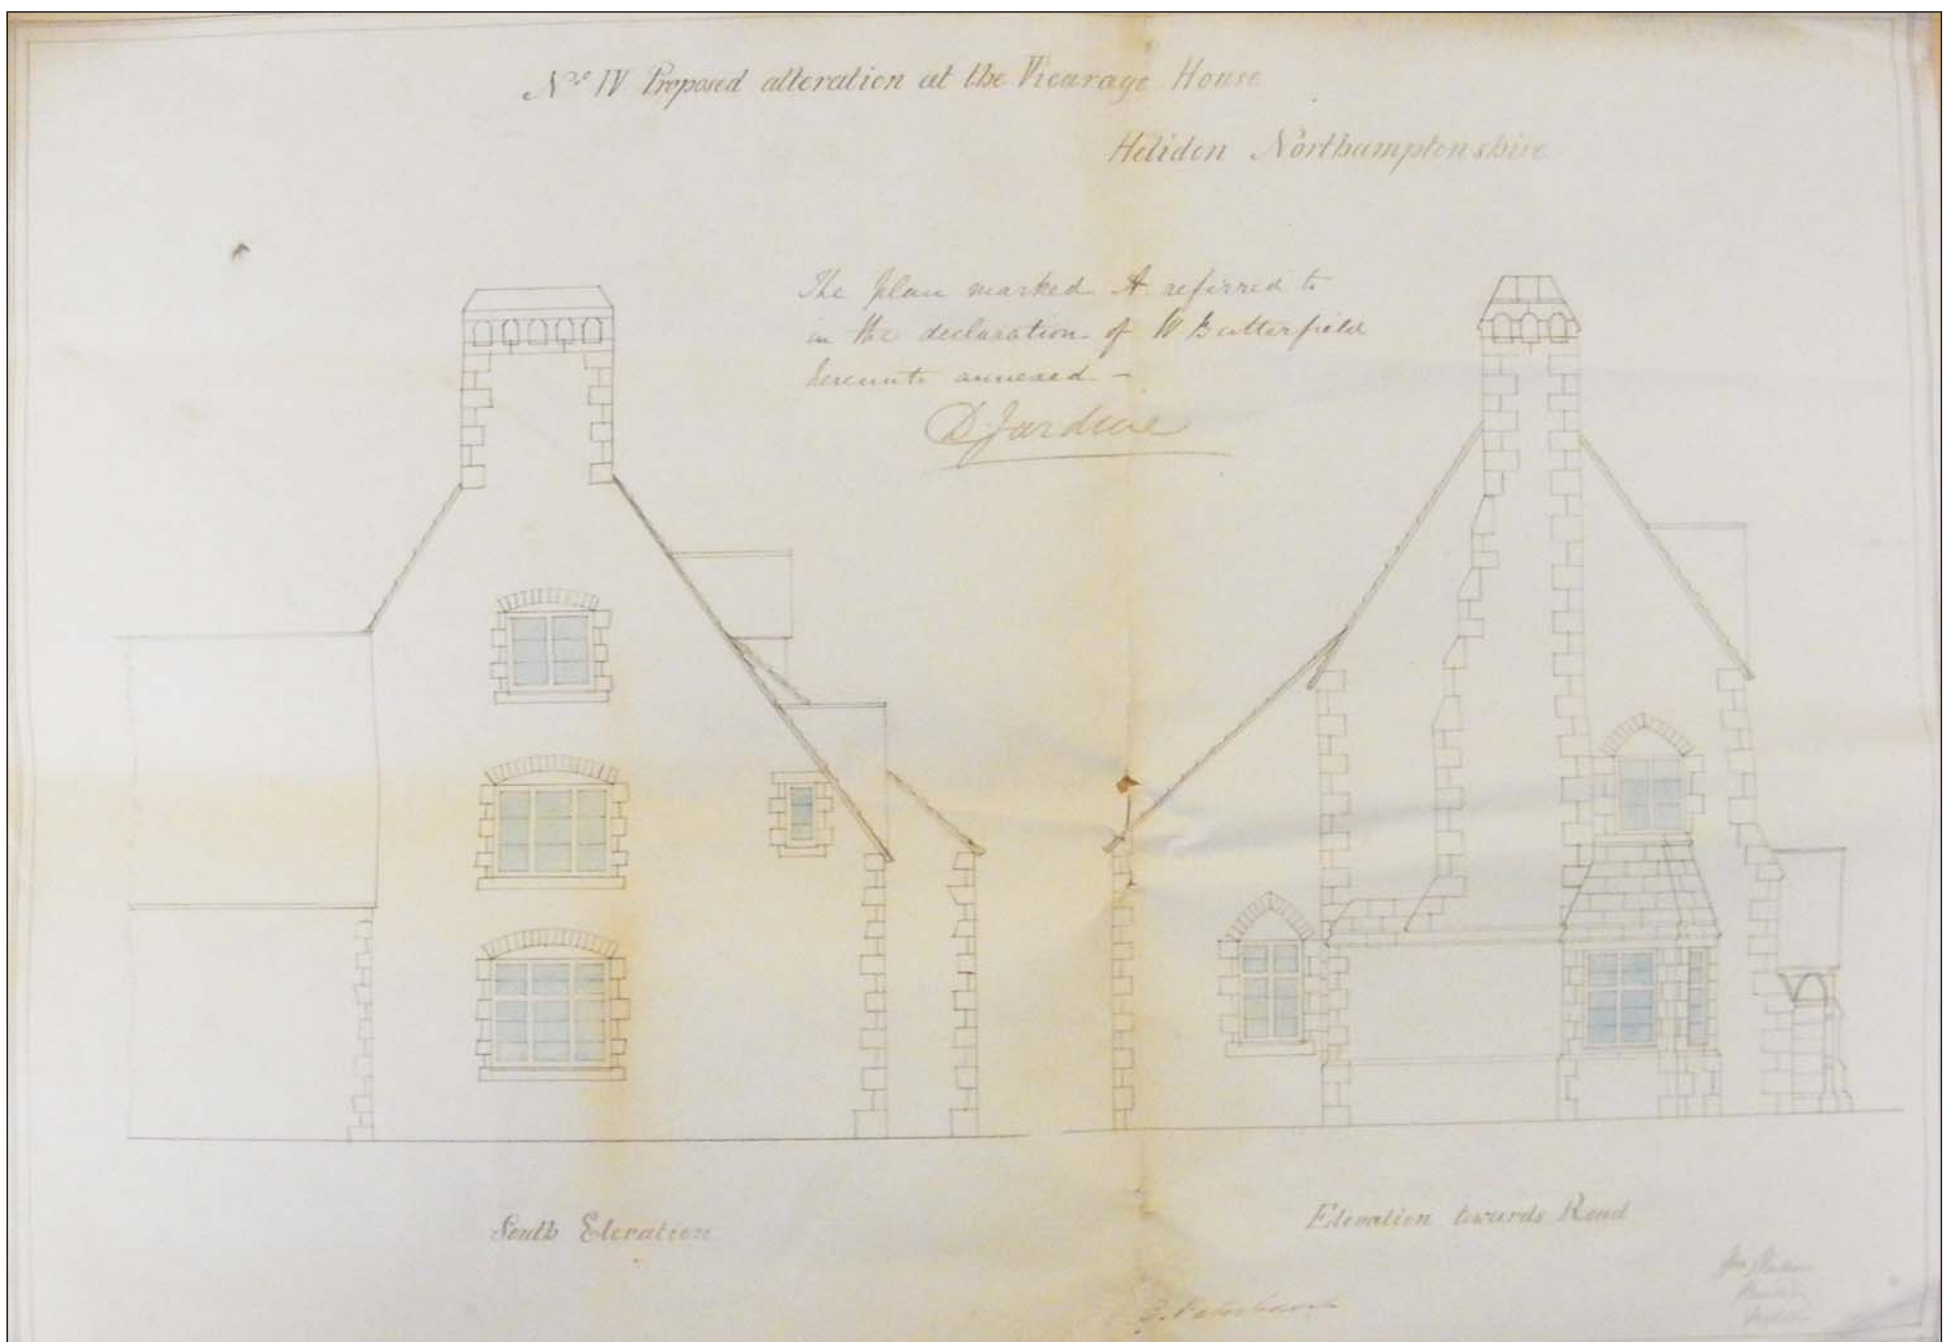 No IV Proposed alteration at the Vicarage House
Helidon Northamptonshire
The plan marked A referred to
in the declaration of W Butterfield
hereunto annexed —
D. Jardine
South Elevation
Elevation towards Road
G. Peterborough